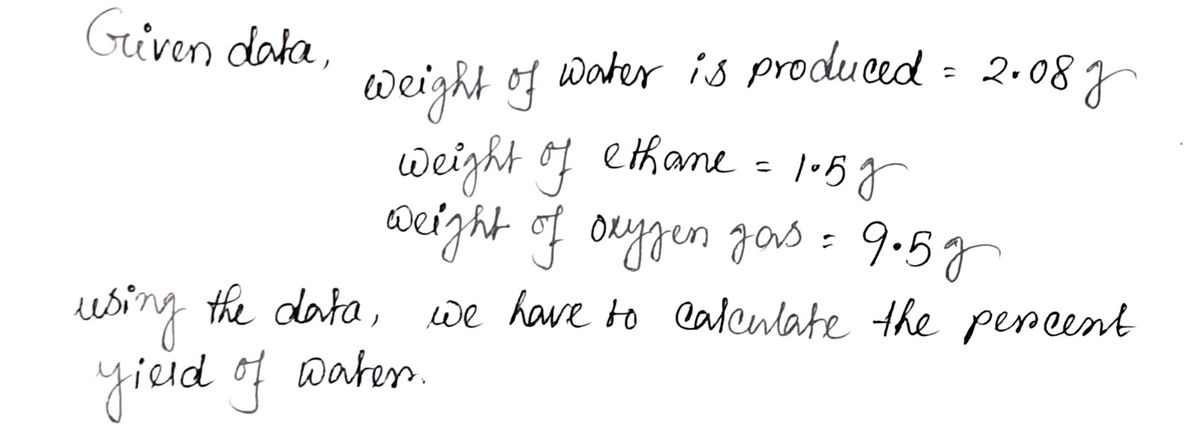 Given data,
weight of water is produced = 2.08 g
weight of ethane = 1.5 g
weight of oxygen gas = 9.5 g
using the data, we have to calculate the percent
yield of water.